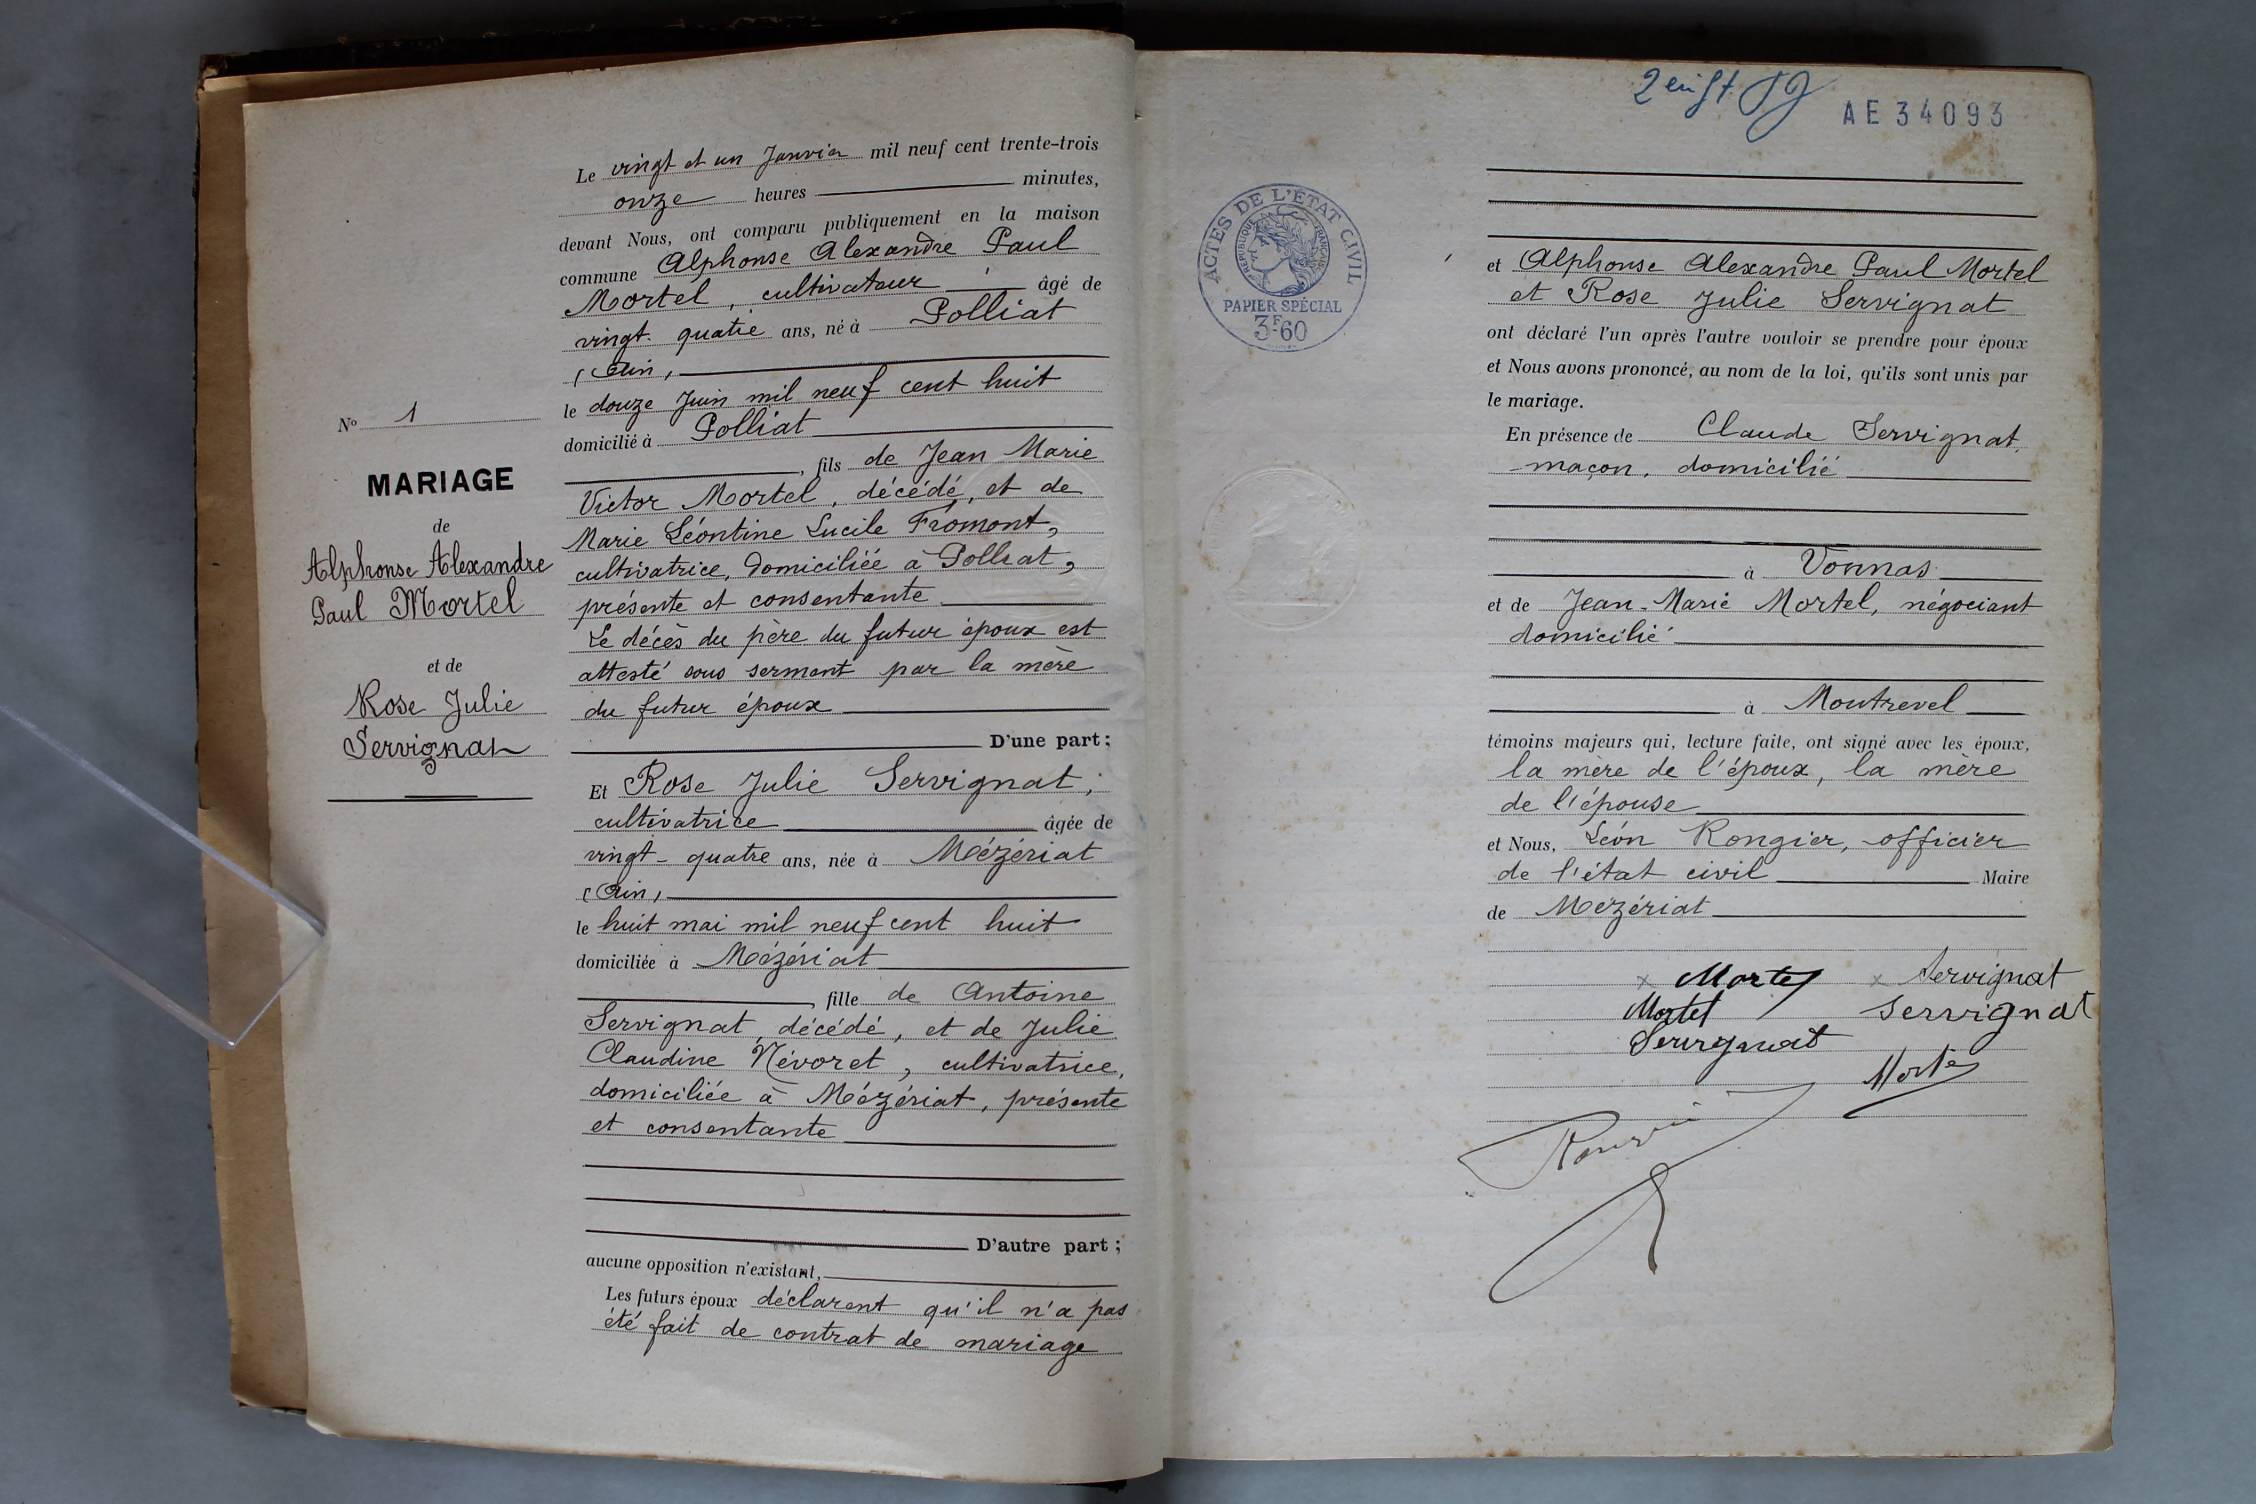 N° 1
MARIAGE
de
Alphonse Alexandre
Paul Mortel
et de
Rose Julie
Servignat
Le vingt et un Janvier mil neuf cent trente-trois
onze heures minutes,
devant Nous, ont comparu publiquement en la maison
commune Alphonse Alexandre Paul
Mortel, cultivateur âgé de
vingt-quatre ans, né à Polliat
(Ain)
le douze Juin mil neuf cent huit
domicilié à Polliat
, fils de Jean Marie
Victor Mortel, décédé, et de
Marie Léontine Lucile Fromont,
cultivatrice, domiciliée à Polliat,
présente et consentante
Le décès du père du futur époux est
attesté sous serment par la mère
du futur époux
D'une part ;
Et Rose Julie Servignat,
cultivatrice âgée de
vingt-quatre ans, née à Mézériat
(Ain)
le huit mai mil neuf cent huit
domiciliée à Mézériat
, fille de Antoine
Servignat, décédé, et de Julie
Claudine Névoret, cultivatrice,
domiciliée à Mézériat, présente
et consentante
D'autre part ;
aucune opposition n'existant,
Les futurs époux déclarent qu'il n'a pas
été fait de contrat de mariage
AE 34093
ACTES DE L'ÉTAT CIVIL
RÉPUBLIQUE FRANÇAISE
PAPIER SPÉCIAL
3F60
et Alphonse Alexandre Paul Mortel
et Rose Julie Servignat
ont déclaré l'un après l'autre vouloir se prendre pour époux
et Nous avons prononcé, au nom de la loi, qu'ils sont unis par
le mariage.
En présence de Claude Servignat,
maçon, domicilié
à Vonnas
et de Jean-Marie Mortel, négociant
domicilié
à Montrevel
témoins majeurs qui, lecture faite, ont signé avec les époux,
la mère de l'époux, la mère
de l'épouse
et Nous, Léon Rongier, officier
de l'état civil Maire
de Mézériat
x Mortel x Servignat
Mortel Servignat
Servignat
Mortel